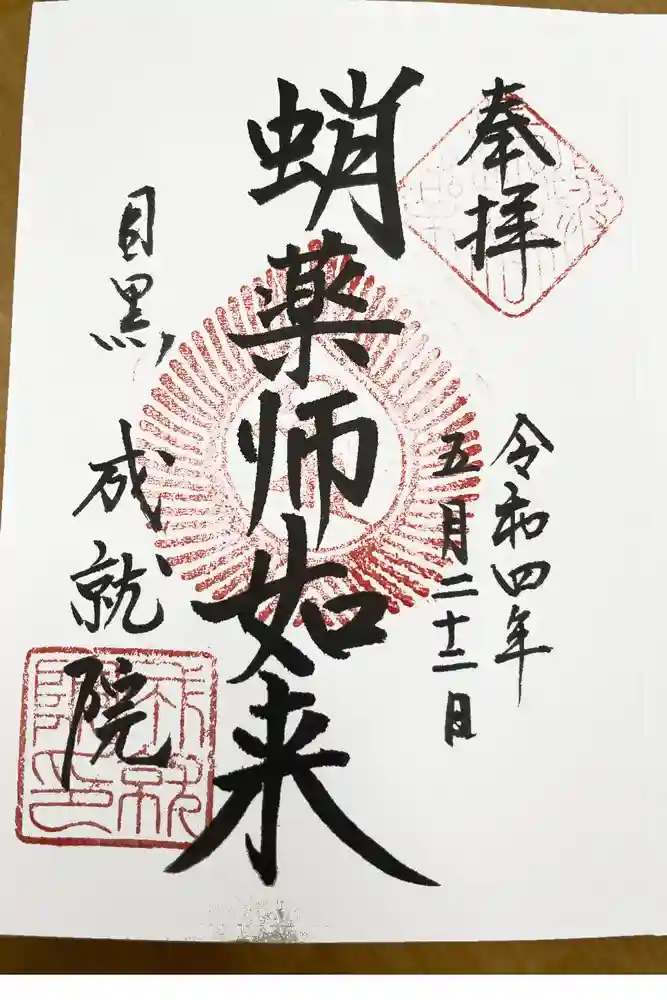 奉拝
令和四年
五月二十二日
蛸薬师如来
目黒 成就院
成就
院印